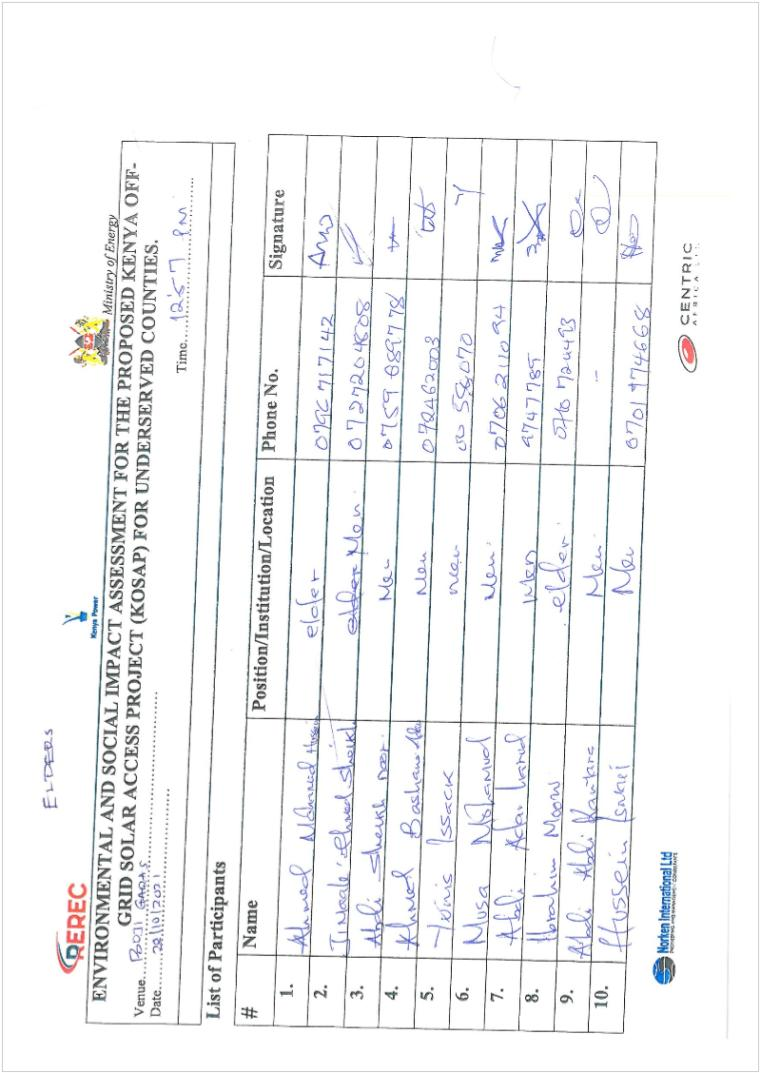 ELDERS
REREC
Kenya Power
Ministry of Energy
ENVIRONMENTAL AND SOCIAL IMPACT ASSESSMENT FOR THE PROPOSED KENYA OFF-
GRID SOLAR ACCESS PROJECT (KOSAP) FOR UNDERSERVED COUNTIES.
Venue
Date 28/10/2021
Time 12:57 PM
List of Participants
# Name Position/Institution/Location Phone No. Signature
1. Ahmed Mohamed Hussein elder 0796717142
2. Jimale Ahmed Sheikh Men. 0727204808
3. Abdi Sheikh Noor. Men 0759889778
4. Ahmed Bashane Men 072462003
5. Yunis Issack men 00 556070
6. Musa Mohamed Men. 0706211094
7. Abdi Men 9747785
8. Ibrahim Moow elder. 0710724493
9. Abdi Abdi Men. -
10. Hussein Men 0701974668
Norken International Ltd
CENTRIC
AFRICA LTD